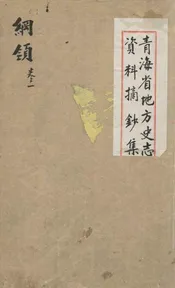 青海省地方史志
資料摘鈔集
綱領